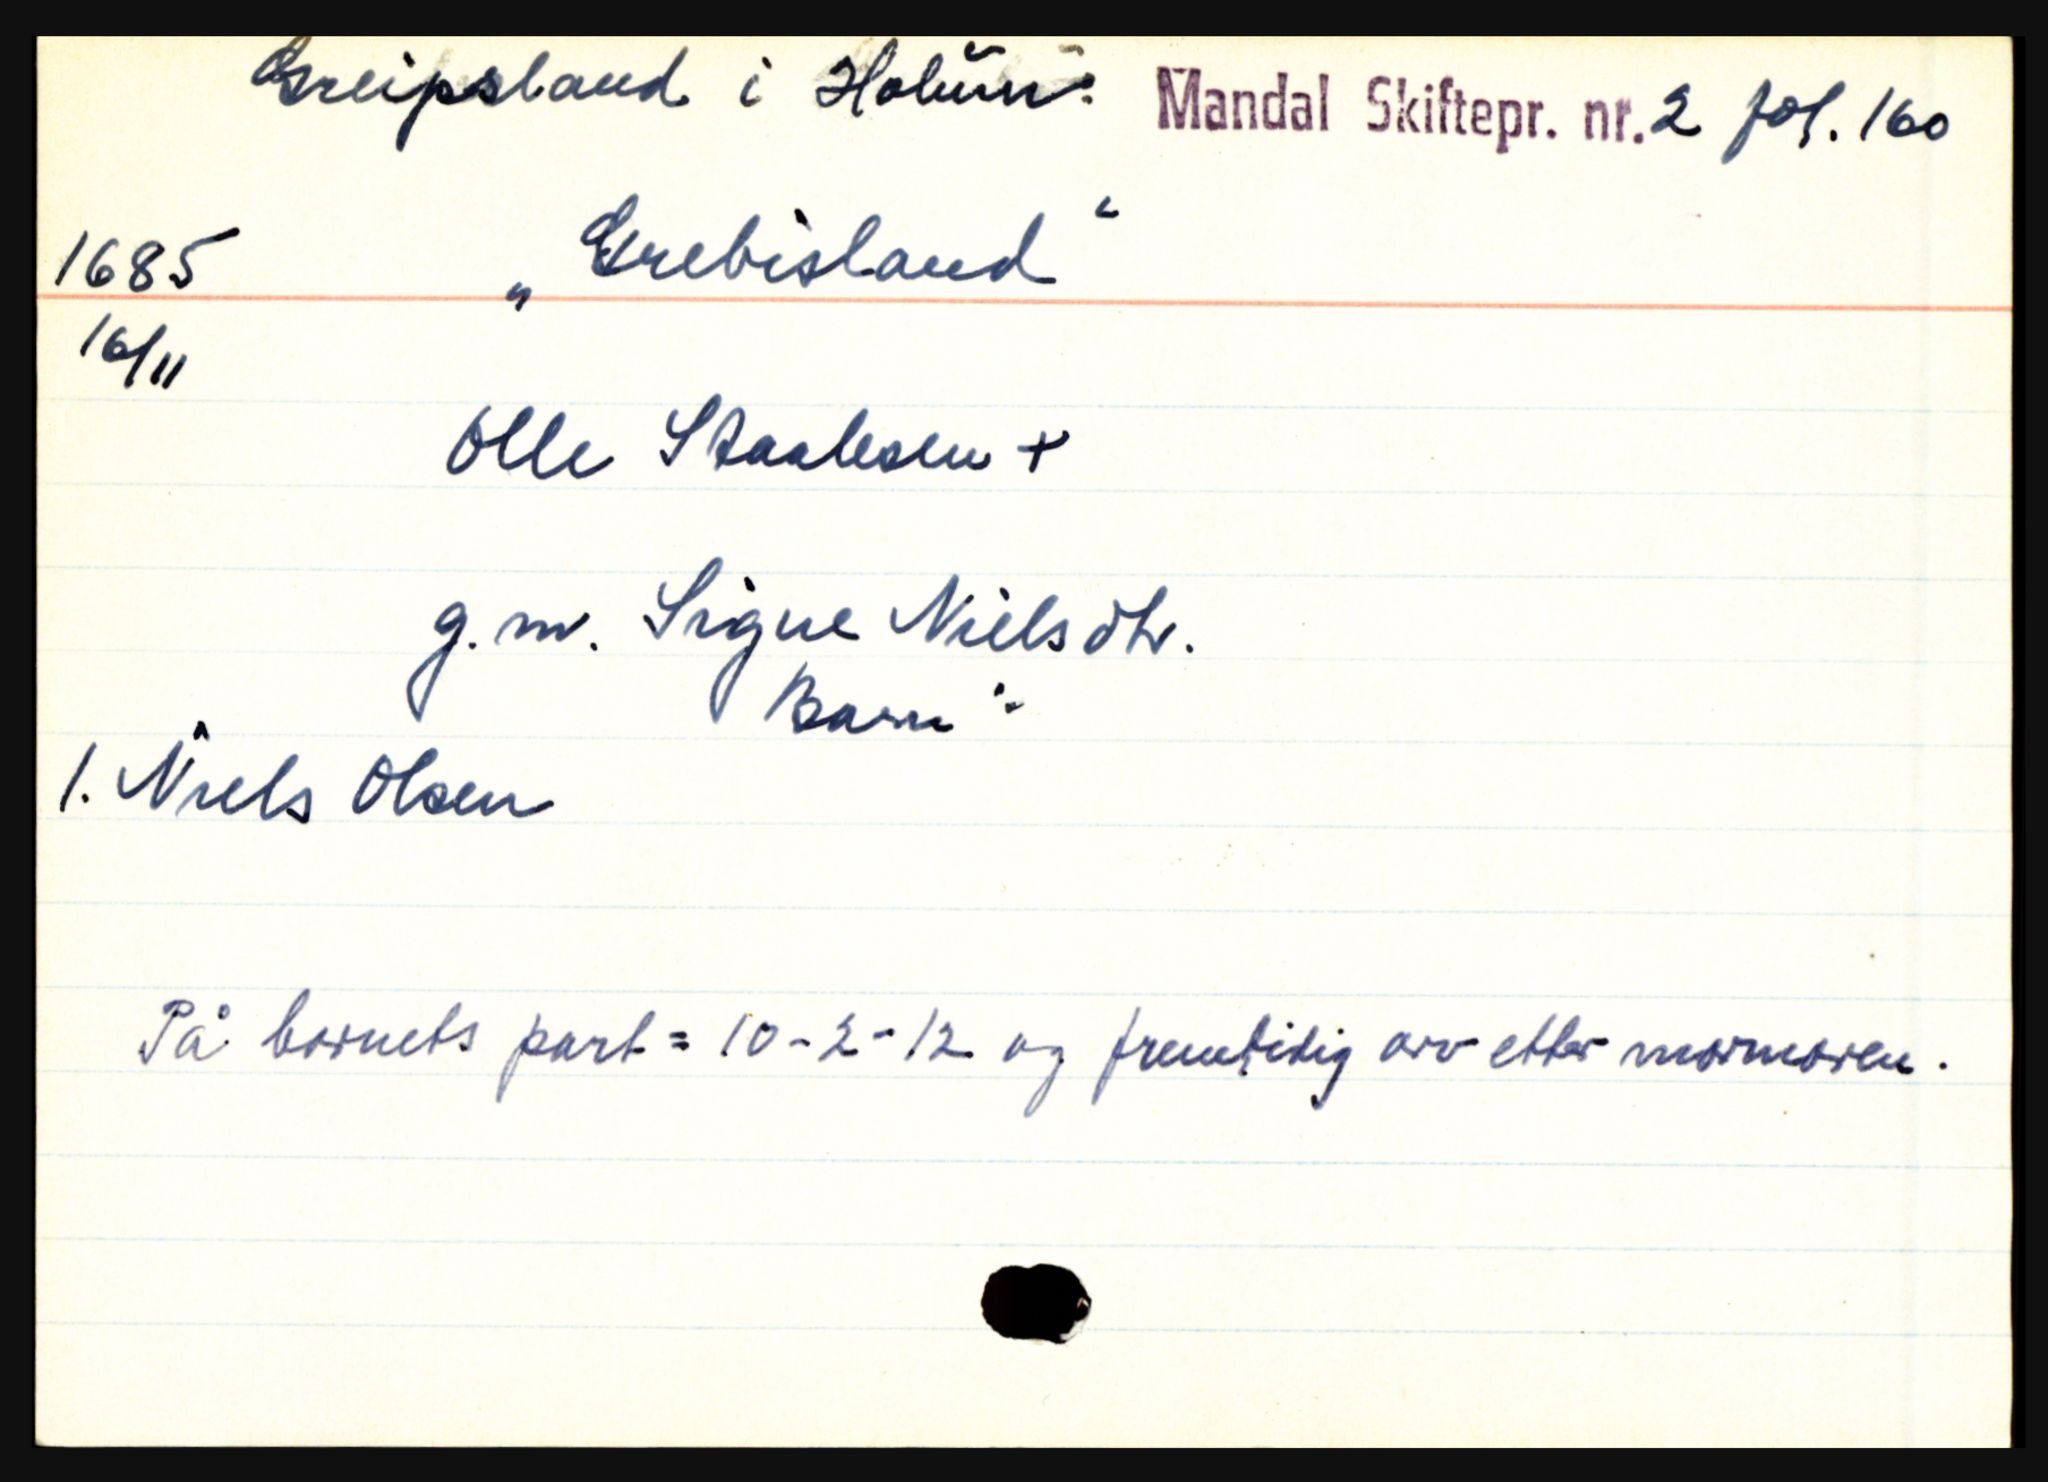 Greipsland i Holum: Mandal Skiftepr. nr. 2 fol. 160
1685 „Grebisland“
16/11
Olle Staalesen +
g. m. Signe Nielsdtr.
Barn:
1. Niels Olsen
På barnets part = 10-2-12 og fremtidig arv etter mormoren.